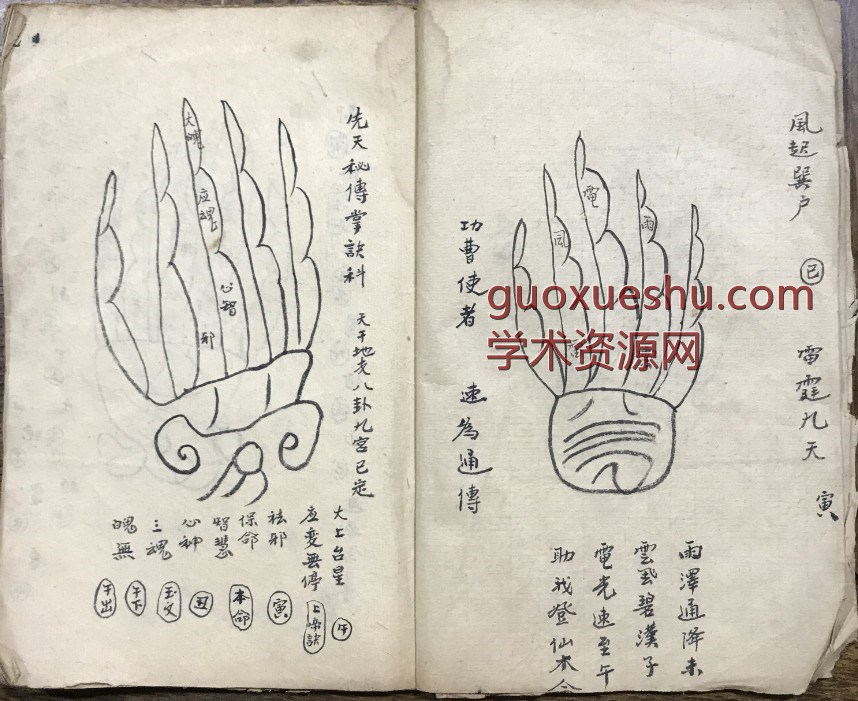 風起巽户
巳
雷霆九天
寅
雨澤通降未
雲風碧漢子
電光速至午
助我登仙本命
功曹使者
速為通傳
風
電
雨
雷
guoxueshu.com
学术资源网
先天秘傳掌訣科
天干地支八卦九宮已定
大魄
应魂
心智
邪
大上台星
午
应变無停
上喉訣
祛邪
寅
保命
本命
智慧
丑
心神
玉文
三魂
午下
魄無
午出